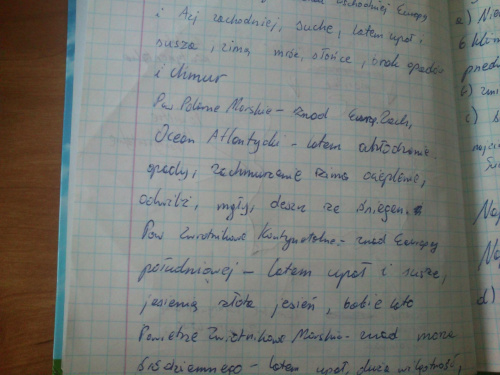 wschodniej Europy
i Azj zachodniej, suche, latem upał i
susza, zimą mróz, słońce, brak opadów
i chmur
Pow. Polarne Morskie - znad Europ. Zach,
Ocean Atlantycki - latem ochłodzenie
opady, zachmurzenie zimą ocieplenie,
odwilż, mgły, deszcz ze śniegem.
Pow Zwrotnikowe Kontynetalne - znad Europy
południowej - latem upał i susza,
jesienią złota jesień, babie lato
Powietrze Zwrotnikowe Morskie - znad morza
śródziemnego - latem upał, duża wilgotność,
a)
b)
c)
d)